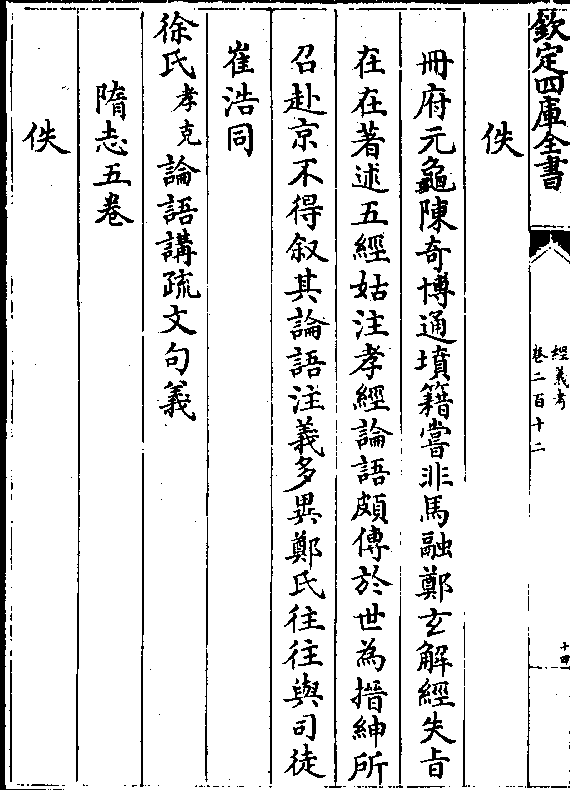 欽定四庫全書
經義考
卷二百十二
十四
佚
冊府元龜陳奇博通墳籍嘗非馬融鄭玄解經失旨
在在著述五經姑注孝經論語頗傳於世為搢紳所
召赴京不得叙其論語注義多異鄭氏往往與司徒
崔浩同
徐氏孝克論語講疏文句義
隋志五卷
佚